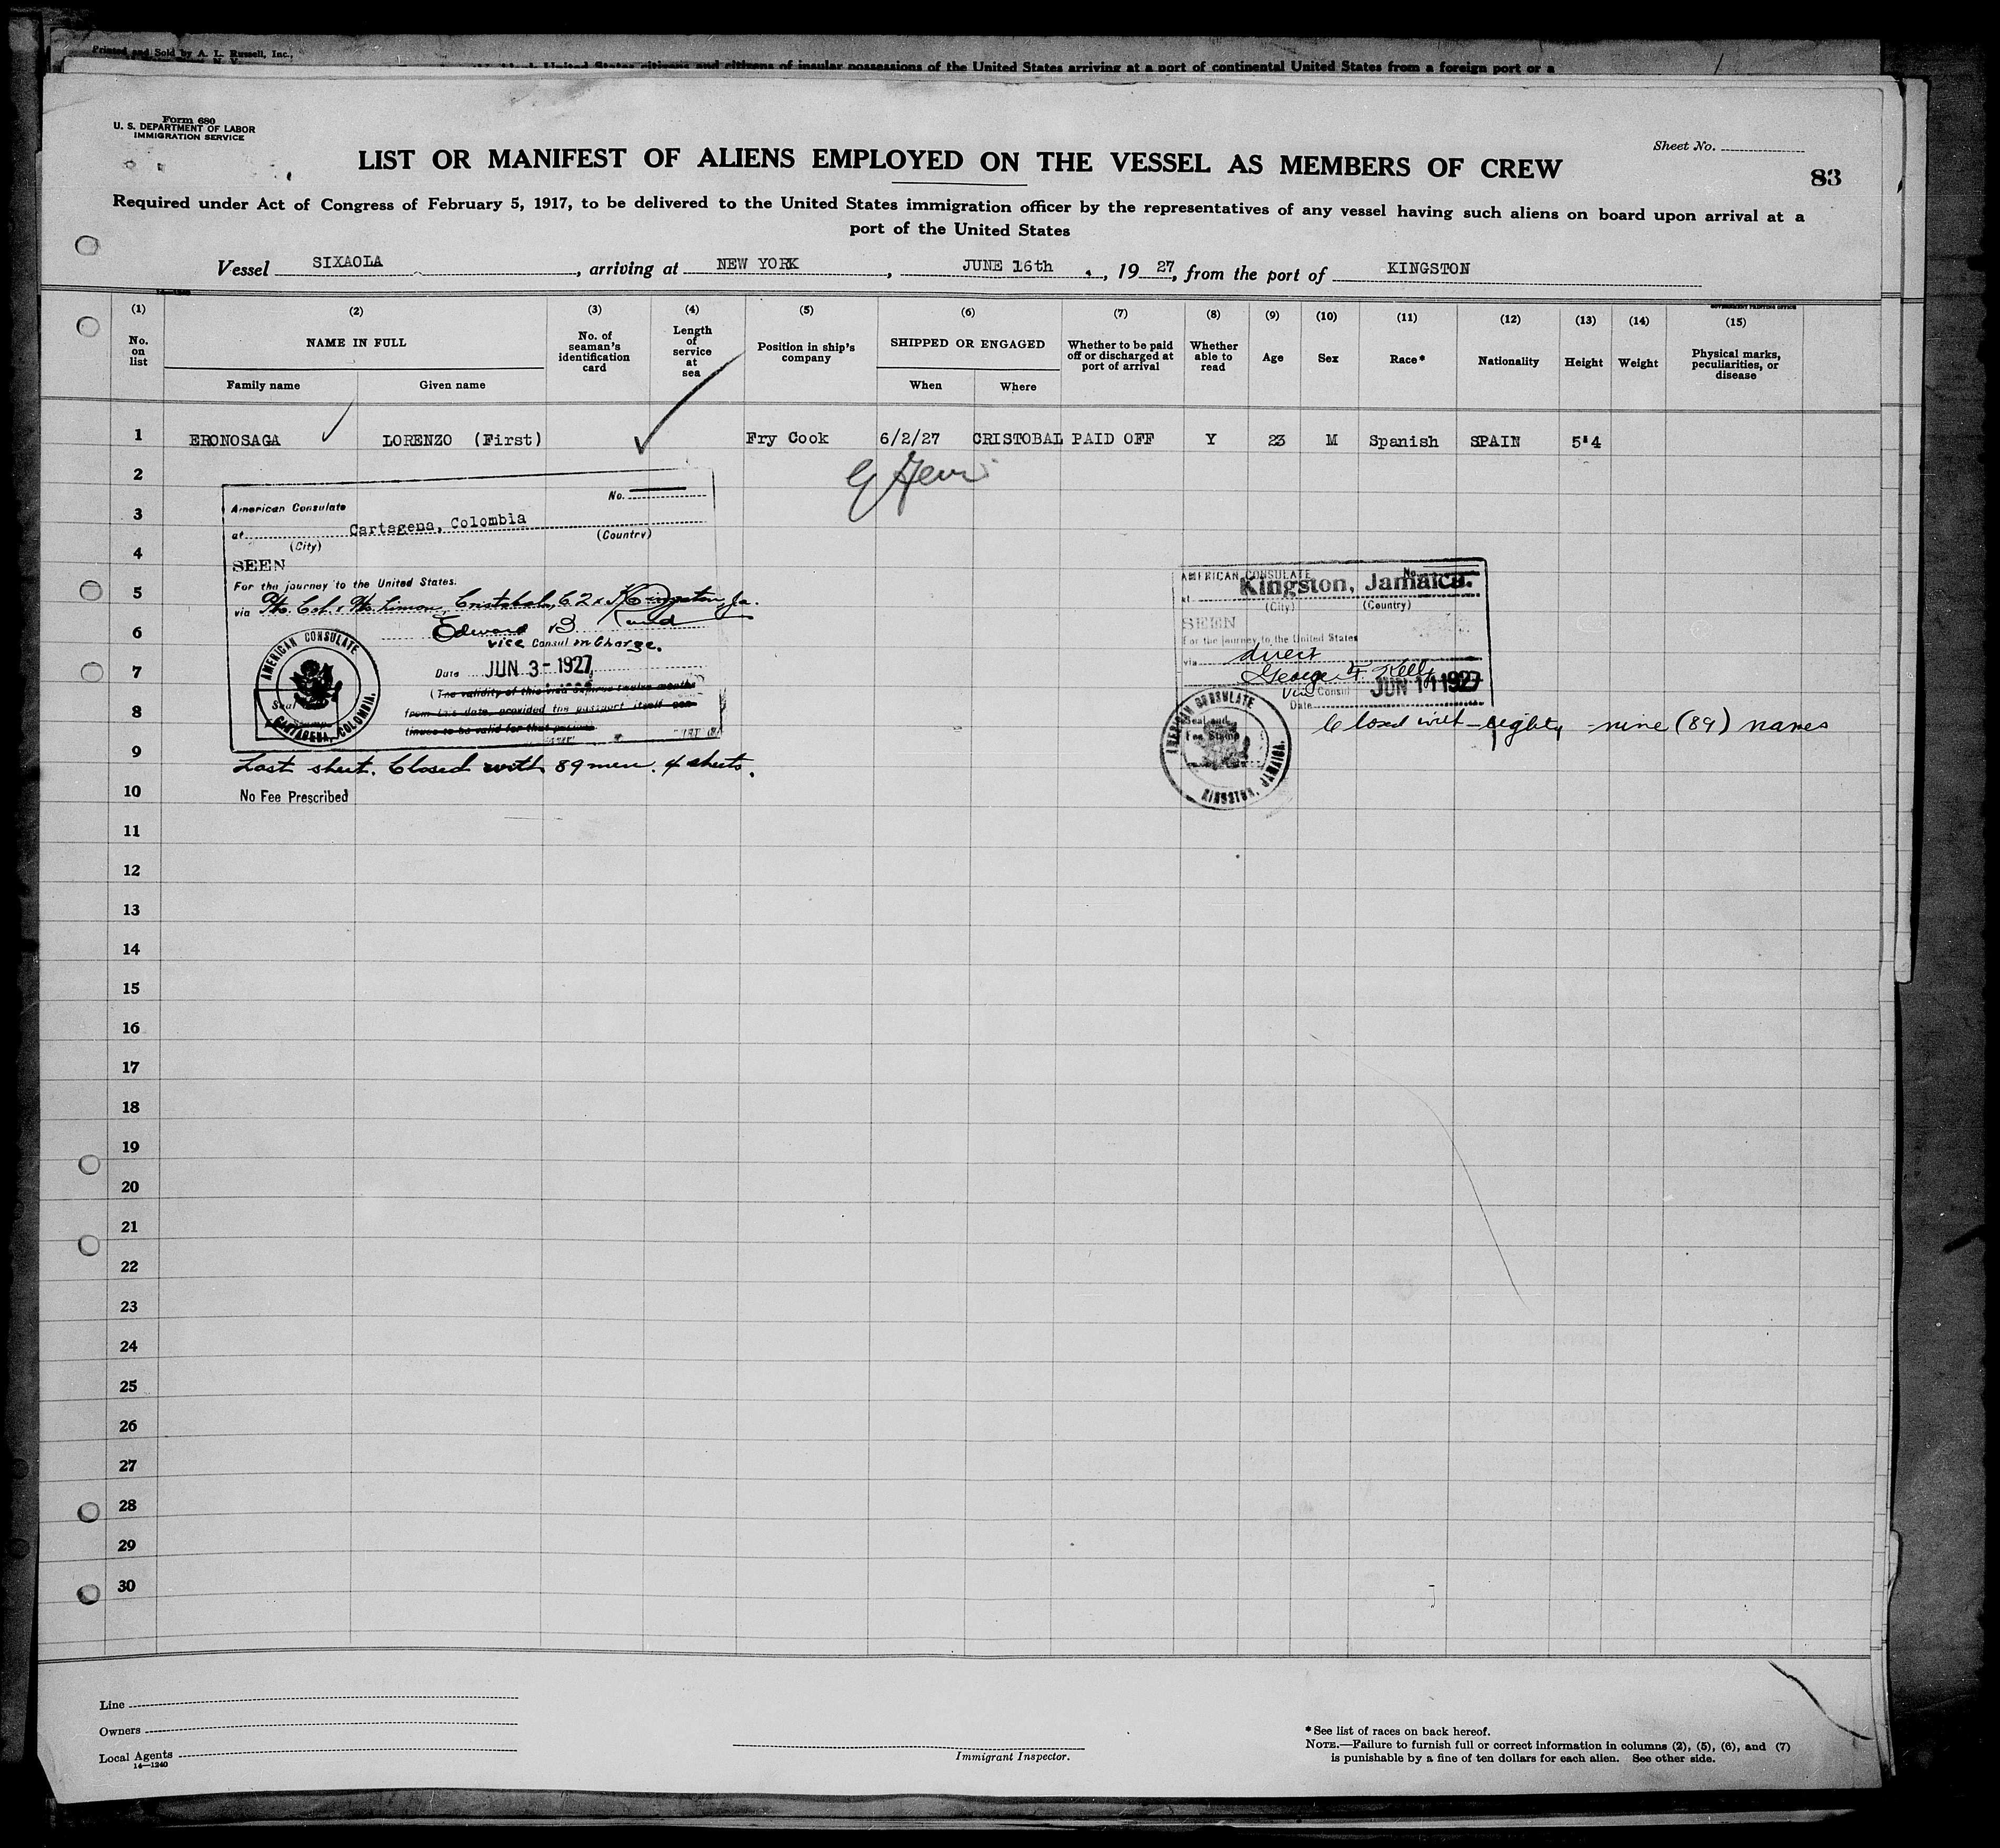 Printed and Sold by A. L. Russell, Inc.,
United States citizens and citizens of insular possessions of the United States arriving at a port of continental United States from a foreign port or a
Form 680
U. S. DEPARTMENT OF LABOR
IMMIGRATION SERVICE
Sheet No.
LIST OR MANIFEST OF ALIENS EMPLOYED ON THE VESSEL AS MEMBERS OF CREW
83
Required under Act of Congress of February 5, 1917, to be delivered to the United States immigration officer by the representatives of any vessel having such aliens on board upon arrival at a
port of the United States
Vessel SIXAOLA, arriving at NEW YORK, JUNE 16th, 1927, from the port of KINGSTON
GOVERNMENT PRINTING OFFICE
(1) (2) (3) (4) (5) (6) (7) (8) (9) (10) (11) (12) (13) (14) (15)
No. on list
NAME IN FULL
Family name
Given name
No. of seaman's identification card
Length of service at sea
Position in ship's company
SHIPPED OR ENGAGED
When
Where
Whether to be paid off or discharged at port of arrival
Whether able to read
Age
Sex
Race*
Nationality
Height
Weight
Physical marks, peculiarities, or disease
1 ERONOSAGA LORENZO (First) Fry Cook 6/2/27 CRISTOBAL PAID OFF Y 23 M Spanish SPAIN 5'4
2
3
4
5
6
7
8
9
10
11
12
13
14
15
16
17
18
19
20
21
22
23
24
25
26
27
28
29
30
No.
American Consulate
at Cartagena, Colombia
(City) (Country)
SEEN
For the journey to the United States.
via Pto. Col. & Pto. Limon, Cristobal, C.Z. & Kingston, Ja.
Edward B. Rand
Vice Consul in Charge.
Date JUN 3 - 1927
(The validity of this visa expires twelve months
from this date, provided the passport itself con-
tinues to be valid for that period)
AMERICAN CONSULATE
CARTAGENA, COLOMBIA.
Seal
Last sheet. Closed with 89 men. 4 sheets.
No Fee Prescribed
AMERICAN CONSULATE No.
at Kingston, Jamaica.
(City) (Country)
SEEN
For the journey to the United States
via direct
George F. Kelly
Vice Consul
Date JUN 11 1927
AMERICAN CONSULATE
KINGSTON, JAMAICA.
Seal and
Fee Stamp
Closed with eighty-nine (89) names
Line
Owners
Local Agents
14—1240
Immigrant Inspector.
*See list of races on back hereof.
NOTE.—Failure to furnish full or correct information in columns (2), (5), (6), and (7)
is punishable by a fine of ten dollars for each alien. See other side.